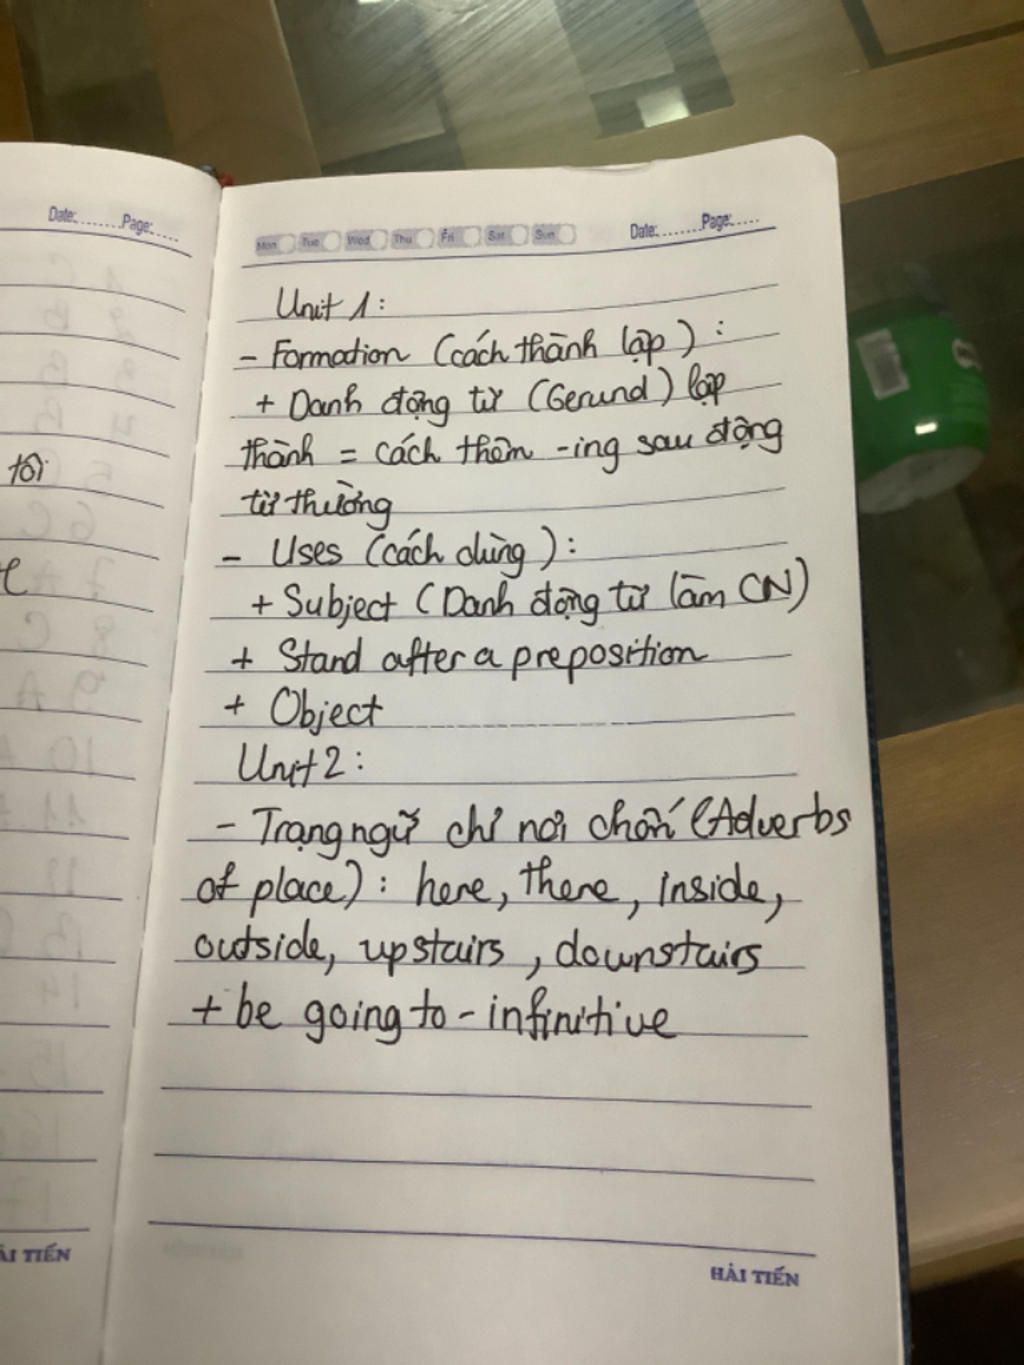 Date:.......Page:.....
tôi
ẢI TIẾN
Mon Tue Wed Thu Fri Sat Sun Date:.......Page:.....
Unit 1:
- Formation (cách thành lập):
+ Danh động từ (Gerund) lập
thành = cách thêm -ing sau động
từ thường
- Uses (cách dùng):
+ Subject (Danh động từ làm CN)
+ Stand after a preposition
+ Object
Unit 2:
- Trạng ngữ chỉ nơi chốn (Adverbs
of place): here, there, inside,
outside, upstairs, downstairs
+ be going to - infinitive
HẢI TIẾN